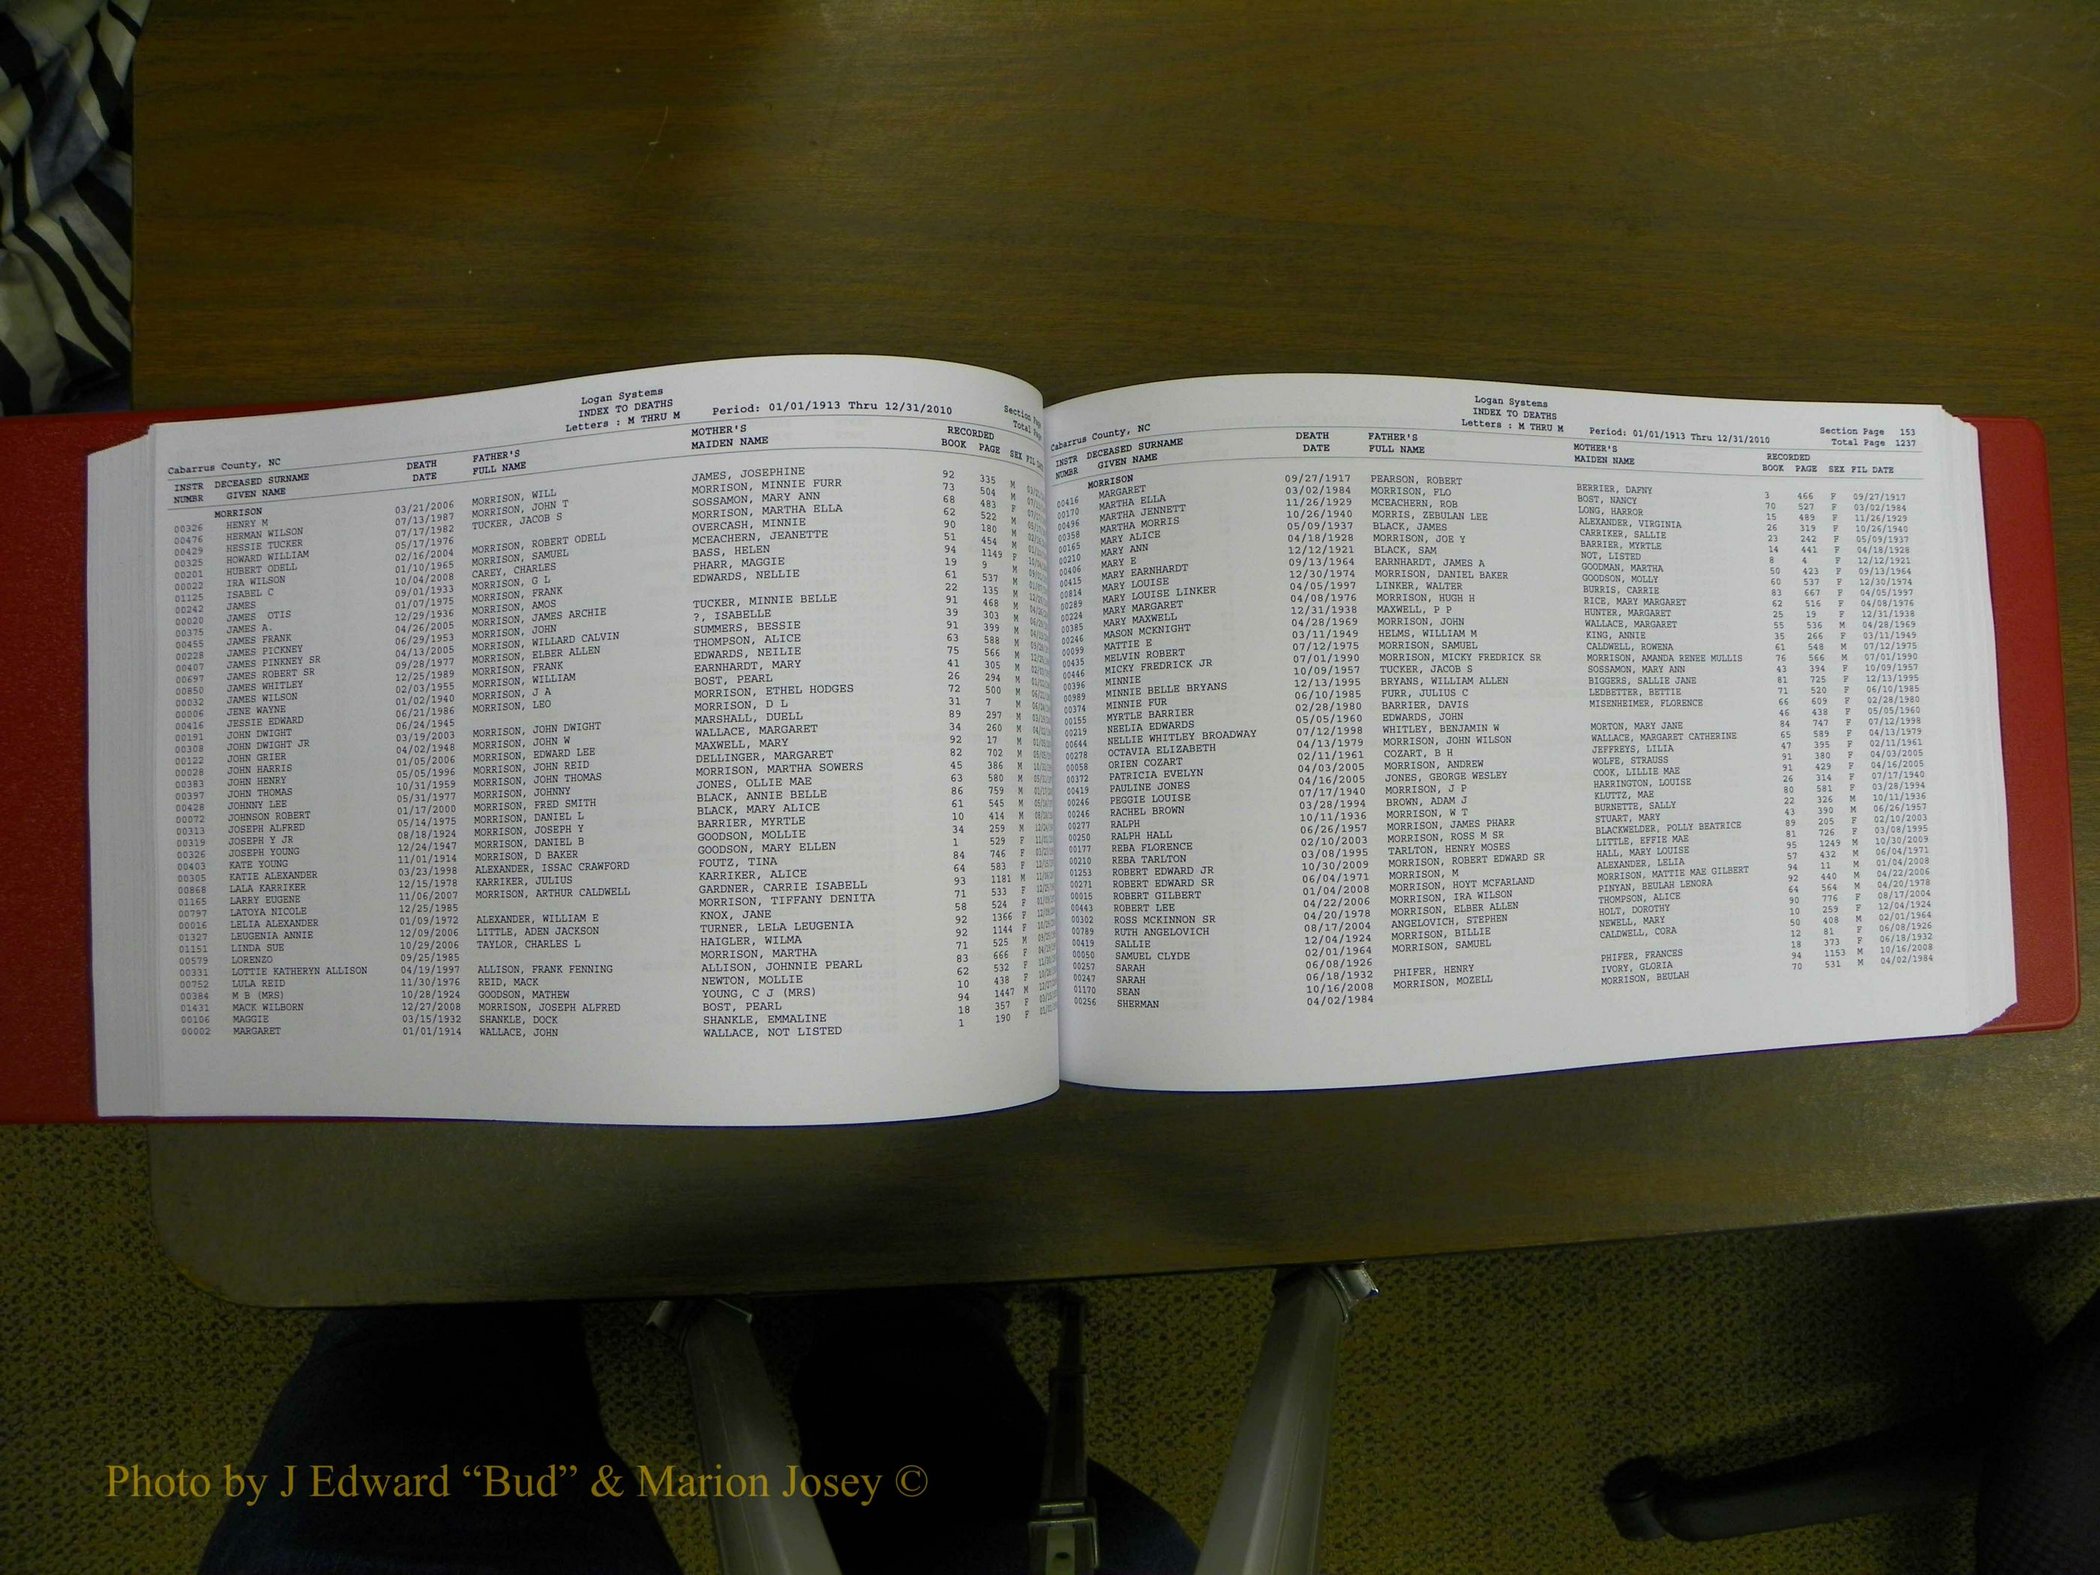 Logan Systems
INDEX TO DEATHS
Letters : M THRU M Period: 01/01/1913 Thru 12/31/2010
Section Page
Total Page
Cabarrus County, NC
INSTR DECEASED SURNAME DEATH FATHER'S MOTHER'S RECORDED
NUMBR GIVEN NAME DATE FULL NAME MAIDEN NAME BOOK PAGE SEX FIL DATE
MORRISON
00326 HENRY M 03/21/2006 MORRISON, WILL JAMES, JOSEPHINE 92 335 M
00476 HERMAN WILSON 07/13/1987 MORRISON, JOHN T MORRISON, MINNIE FURR 73 504 M
00429 HESSIE TUCKER 07/17/1982 TUCKER, JACOB S SOSSAMON, MARY ANN 68 483 F
00325 HOWARD WILLIAM 05/17/1976 MORRISON, MARTHA ELLA 62 522 M
00201 HUBERT ODELL 02/16/2004 MORRISON, ROBERT ODELL OVERCASH, MINNIE 90 180 M
00022 IRA WILSON 01/10/1965 MORRISON, SAMUEL MCEACHERN, JEANETTE 51 454 M
01125 ISABEL C 10/04/2008 CAREY, CHARLES BASS, HELEN 94 1149 F
00242 JAMES 09/01/1933 MORRISON, G L PHARR, MAGGIE 19 9 M
00020 JAMES OTIS 01/07/1975 MORRISON, FRANK EDWARDS, NELLIE 61 537 M
00375 JAMES A. 12/29/1936 MORRISON, AMOS 22 135 M
00455 JAMES FRANK 04/26/2005 MORRISON, JAMES ARCHIE TUCKER, MINNIE BELLE 91 468 M
00228 JAMES PICKNEY 06/29/1953 MORRISON, JOHN ?, ISABELLE 39 303 M
00407 JAMES PINKNEY SR 04/13/2005 MORRISON, WILLARD CALVIN SUMMERS, BESSIE 91 399 M
00697 JAMES ROBERT SR 09/28/1977 MORRISON, ELBER ALLEN THOMPSON, ALICE 63 588 M
00850 JAMES WHITLEY 12/25/1989 MORRISON, FRANK EDWARDS, NEILIE 75 566 M
00032 JAMES WILSON 02/03/1955 MORRISON, WILLIAM EARNHARDT, MARY 41 305 M
00006 JENE WAYNE 01/02/1940 MORRISON, J A BOST, PEARL 26 294 M
00416 JESSIE EDWARD 06/21/1986 MORRISON, LEO MORRISON, ETHEL HODGES 72 500 M
00191 JOHN DWIGHT 06/24/1945 MORRISON, D L 31 7 M
00308 JOHN DWIGHT JR 03/19/2003 MORRISON, JOHN DWIGHT MARSHALL, DUELL 89 297 M
00122 JOHN GRIER 04/02/1948 MORRISON, JOHN W WALLACE, MARGARET 34 260 M
00028 JOHN HARRIS 01/05/2006 MORRISON, EDWARD LEE MAXWELL, MARY 92 17 M
00383 JOHN HENRY 05/05/1996 MORRISON, JOHN REID DELLINGER, MARGARET 82 702 M
00397 JOHN THOMAS 10/31/1959 MORRISON, JOHN THOMAS MORRISON, MARTHA SOWERS 45 386 M
00428 JOHNNY LEE 05/31/1977 MORRISON, JOHNNY JONES, OLLIE MAE 63 580 M
00072 JOHNSON ROBERT 01/17/2000 MORRISON, FRED SMITH BLACK, ANNIE BELLE 86 759 M
00313 JOSEPH ALFRED 05/14/1975 MORRISON, DANIEL L BLACK, MARY ALICE 61 545 M
00319 JOSEPH Y JR 08/18/1924 MORRISON, JOSEPH Y BARRIER, MYRTLE 10 414 M
00326 JOSEPH YOUNG 12/24/1947 MORRISON, DANIEL B GOODSON, MOLLIE 34 259 M
00403 KATE YOUNG 11/01/1914 MORRISON, D BAKER GOODSON, MARY ELLEN 1 529 F
00305 KATIE ALEXANDER 03/23/1998 ALEXANDER, ISSAC CRAWFORD FOUTZ, TINA 84 746 F
00868 LALA KARRIKER 12/15/1978 KARRIKER, JULIUS KARRIKER, ALICE 64 583 F
01165 LARRY EUGENE 11/06/2007 MORRISON, ARTHUR CALDWELL GARDNER, CARRIE ISABELL 93 1181 M
00797 LATOYA NICOLE 12/25/1985 MORRISON, TIFFANY DENITA 71 533 F
00016 LELIA ALEXANDER 01/09/1972 ALEXANDER, WILLIAM E KNOX, JANE 58 524 F
01327 LEUGENIA ANNIE 12/09/2006 LITTLE, ADEN JACKSON TURNER, LELA LEUGENIA 92 1366 F
01151 LINDA SUE 10/29/2006 TAYLOR, CHARLES L HAIGLER, WILMA 92 1144 F
00579 LORENZO 09/25/1985 MORRISON, MARTHA 71 525 M
00331 LOTTIE KATHERYN ALLISON 04/19/1997 ALLISON, FRANK FENNING ALLISON, JOHNNIE PEARL 83 666 F
00752 LULA REID 11/30/1976 REID, MACK NEWTON, MOLLIE 62 532 F
00384 M B (MRS) 10/28/1924 GOODSON, MATHEW YOUNG, C J (MRS) 10 438 F
01431 MACK WILBORN 12/27/2008 MORRISON, JOSEPH ALFRED BOST, PEARL 94 1447 M
00106 MAGGIE 03/15/1932 SHANKLE, DOCK SHANKLE, EMMALINE 18 357 F
00002 MARGARET 01/01/1914 WALLACE, JOHN WALLACE, NOT LISTED 1 190 F
Logan Systems
INDEX TO DEATHS
Letters : M THRU M Period: 01/01/1913 Thru 12/31/2010
Section Page 153
Total Page 1237
Cabarrus County, NC
INSTR DECEASED SURNAME DEATH FATHER'S MOTHER'S RECORDED
NUMBR GIVEN NAME DATE FULL NAME MAIDEN NAME BOOK PAGE SEX FIL DATE
MORRISON
00416 MARGARET 09/27/1917 PEARSON, ROBERT BERRIER, DAFNY 3 466 F 09/27/1917
00170 MARTHA ELLA 03/02/1984 MORRISON, FLO BOST, NANCY 70 527 F 03/02/1984
00496 MARTHA JENNETT 11/26/1929 MCEACHERN, ROB LONG, HARROR 15 489 F 11/26/1929
00358 MARTHA MORRIS 10/26/1940 MORRIS, ZEBULAN LEE ALEXANDER, VIRGINIA 26 319 F 10/26/1940
00165 MARY ALICE 05/09/1937 BLACK, JAMES CARRIKER, SALLIE 23 242 F 05/09/1937
00210 MARY ANN 04/18/1928 MORRISON, JOE Y BARRIER, MYRTLE 14 441 F 04/18/1928
00406 MARY E 12/12/1921 BLACK, SAM NOT, LISTED 8 4 F 12/12/1921
00415 MARY EARNHARDT 09/13/1964 EARNHARDT, JAMES A GOODMAN, MARTHA 50 423 F 09/13/1964
00814 MARY LOUISE 12/30/1974 MORRISON, DANIEL BAKER GOODSON, MOLLY 60 537 F 12/30/1974
00289 MARY LOUISE LINKER 04/05/1997 LINKER, WALTER BURRIS, CARRIE 83 667 F 04/05/1997
00224 MARY MARGARET 04/08/1976 MORRISON, HUGH H RICE, MARY MARGARET 62 516 F 04/08/1976
00385 MARY MAXWELL 12/31/1938 MAXWELL, P P HUNTER, MARGARET 25 19 F 12/31/1938
00246 MASON MCKNIGHT 04/28/1969 MORRISON, JOHN WALLACE, MARGARET 55 536 M 04/28/1969
00099 MATTIE E 03/11/1949 HELMS, WILLIAM M KING, ANNIE 35 266 F 03/11/1949
00435 MELVIN ROBERT 07/12/1975 MORRISON, SAMUEL CALDWELL, ROWENA 61 548 M 07/12/1975
00446 MICKY FREDRICK JR 07/01/1990 MORRISON, MICKY FREDRICK SR MORRISON, AMANDA RENEE MULLIS 76 566 M 07/01/1990
00396 MINNIE 10/09/1957 TUCKER, JACOB S SOSSAMON, MARY ANN 43 394 F 10/09/1957
00989 MINNIE BELLE BRYANS 12/13/1995 BRYANS, WILLIAM ALLEN BIGGERS, SALLIE JANE 81 725 F 12/13/1995
00374 MINNIE FUR 06/10/1985 FURR, JULIUS C LEDBETTER, BETTIE 71 520 F 06/10/1985
00155 MYRTLE BARRIER 02/28/1980 BARRIER, DAVIS MISENHEIMER, FLORENCE 66 609 F 02/28/1980
00219 NEELIA EDWARDS 05/05/1960 EDWARDS, JOHN 46 438 F 05/05/1960
00644 NELLIE WHITLEY BROADWAY 07/12/1998 WHITLEY, BENJAMIN W MORTON, MARY JANE 84 747 F 07/12/1998
00278 OCTAVIA ELIZABETH 04/13/1979 MORRISON, JOHN WILSON WALLACE, MARGARET CATHERINE 65 589 F 04/13/1979
00058 ORIEN COZART 02/11/1961 COZART, B H JEFFREYS, LILIA 47 395 F 02/11/1961
00372 PATRICIA EVELYN 04/03/2005 MORRISON, ANDREW WOLFE, STRAUSS 91 380 F 04/03/2005
00419 PAULINE JONES 04/16/2005 JONES, GEORGE WESLEY COOK, LILLIE MAE 91 429 F 04/16/2005
00246 PEGGIE LOUISE 07/17/1940 MORRISON, J P HARRINGTON, LOUISE 26 314 F 07/17/1940
00246 RACHEL BROWN 03/28/1994 BROWN, ADAM J KLUTTZ, MAE 80 581 F 03/28/1994
00277 RALPH 10/11/1936 MORRISON, W T BURNETTE, SALLY 22 326 M 10/11/1936
00250 RALPH HALL 06/26/1957 MORRISON, JAMES PHARR STUART, MARY 43 390 M 06/26/1957
00177 REBA FLORENCE 02/10/2003 MORRISON, ROSS M SR BLACKWELDER, POLLY BEATRICE 89 205 F 02/10/2003
00210 REBA TARLTON 03/08/1995 TARLTON, HENRY MOSES LITTLE, EFFIE MAE 81 726 F 03/08/1995
01253 ROBERT EDWARD JR 10/30/2009 MORRISON, ROBERT EDWARD SR HALL, MARY LOUISE 95 1249 M 10/30/2009
00271 ROBERT EDWARD SR 06/04/1971 MORRISON, M ALEXANDER, LELIA 57 432 M 06/04/1971
00015 ROBERT GILBERT 01/04/2008 MORRISON, HOYT MCFARLAND MORRISON, MATTIE MAE GILBERT 94 11 M 01/04/2008
00443 ROBERT LEE 04/22/2006 MORRISON, IRA WILSON PINYAN, BEULAH LENORA 92 440 M 04/22/2006
00302 ROSS MCKINNON SR 04/20/1978 MORRISON, ELBER ALLEN THOMPSON, ALICE 64 564 M 04/20/1978
00789 RUTH ANGELOVICH 08/17/2004 ANGELOVICH, STEPHEN HOLT, DOROTHY 90 776 F 08/17/2004
00419 SALLIE 12/04/1924 MORRISON, BILLIE NEWELL, MARY 10 259 F 12/04/1924
00050 SAMUEL CLYDE 02/01/1964 MORRISON, SAMUEL CALDWELL, CORA 50 408 M 02/01/1964
00257 SARAH 06/08/1926 12 81 F 06/08/1926
00247 SARAH 06/18/1932 PHIFER, HENRY PHIFER, FRANCES 18 373 F 06/18/1932
01170 SEAN 10/16/2008 MORRISON, MOZELL IVORY, GLORIA 94 1153 M 10/16/2008
00256 SHERMAN 04/02/1984 MORRISON, BEULAH 70 531 M 04/02/1984
Photo by J Edward “Bud” & Marion Josey ©